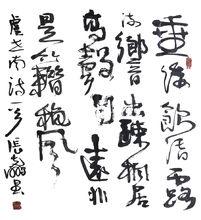 垂緌飲清露
流響出疎桐居
高聲自遠非
是藉秋風
虞世南詩一首張